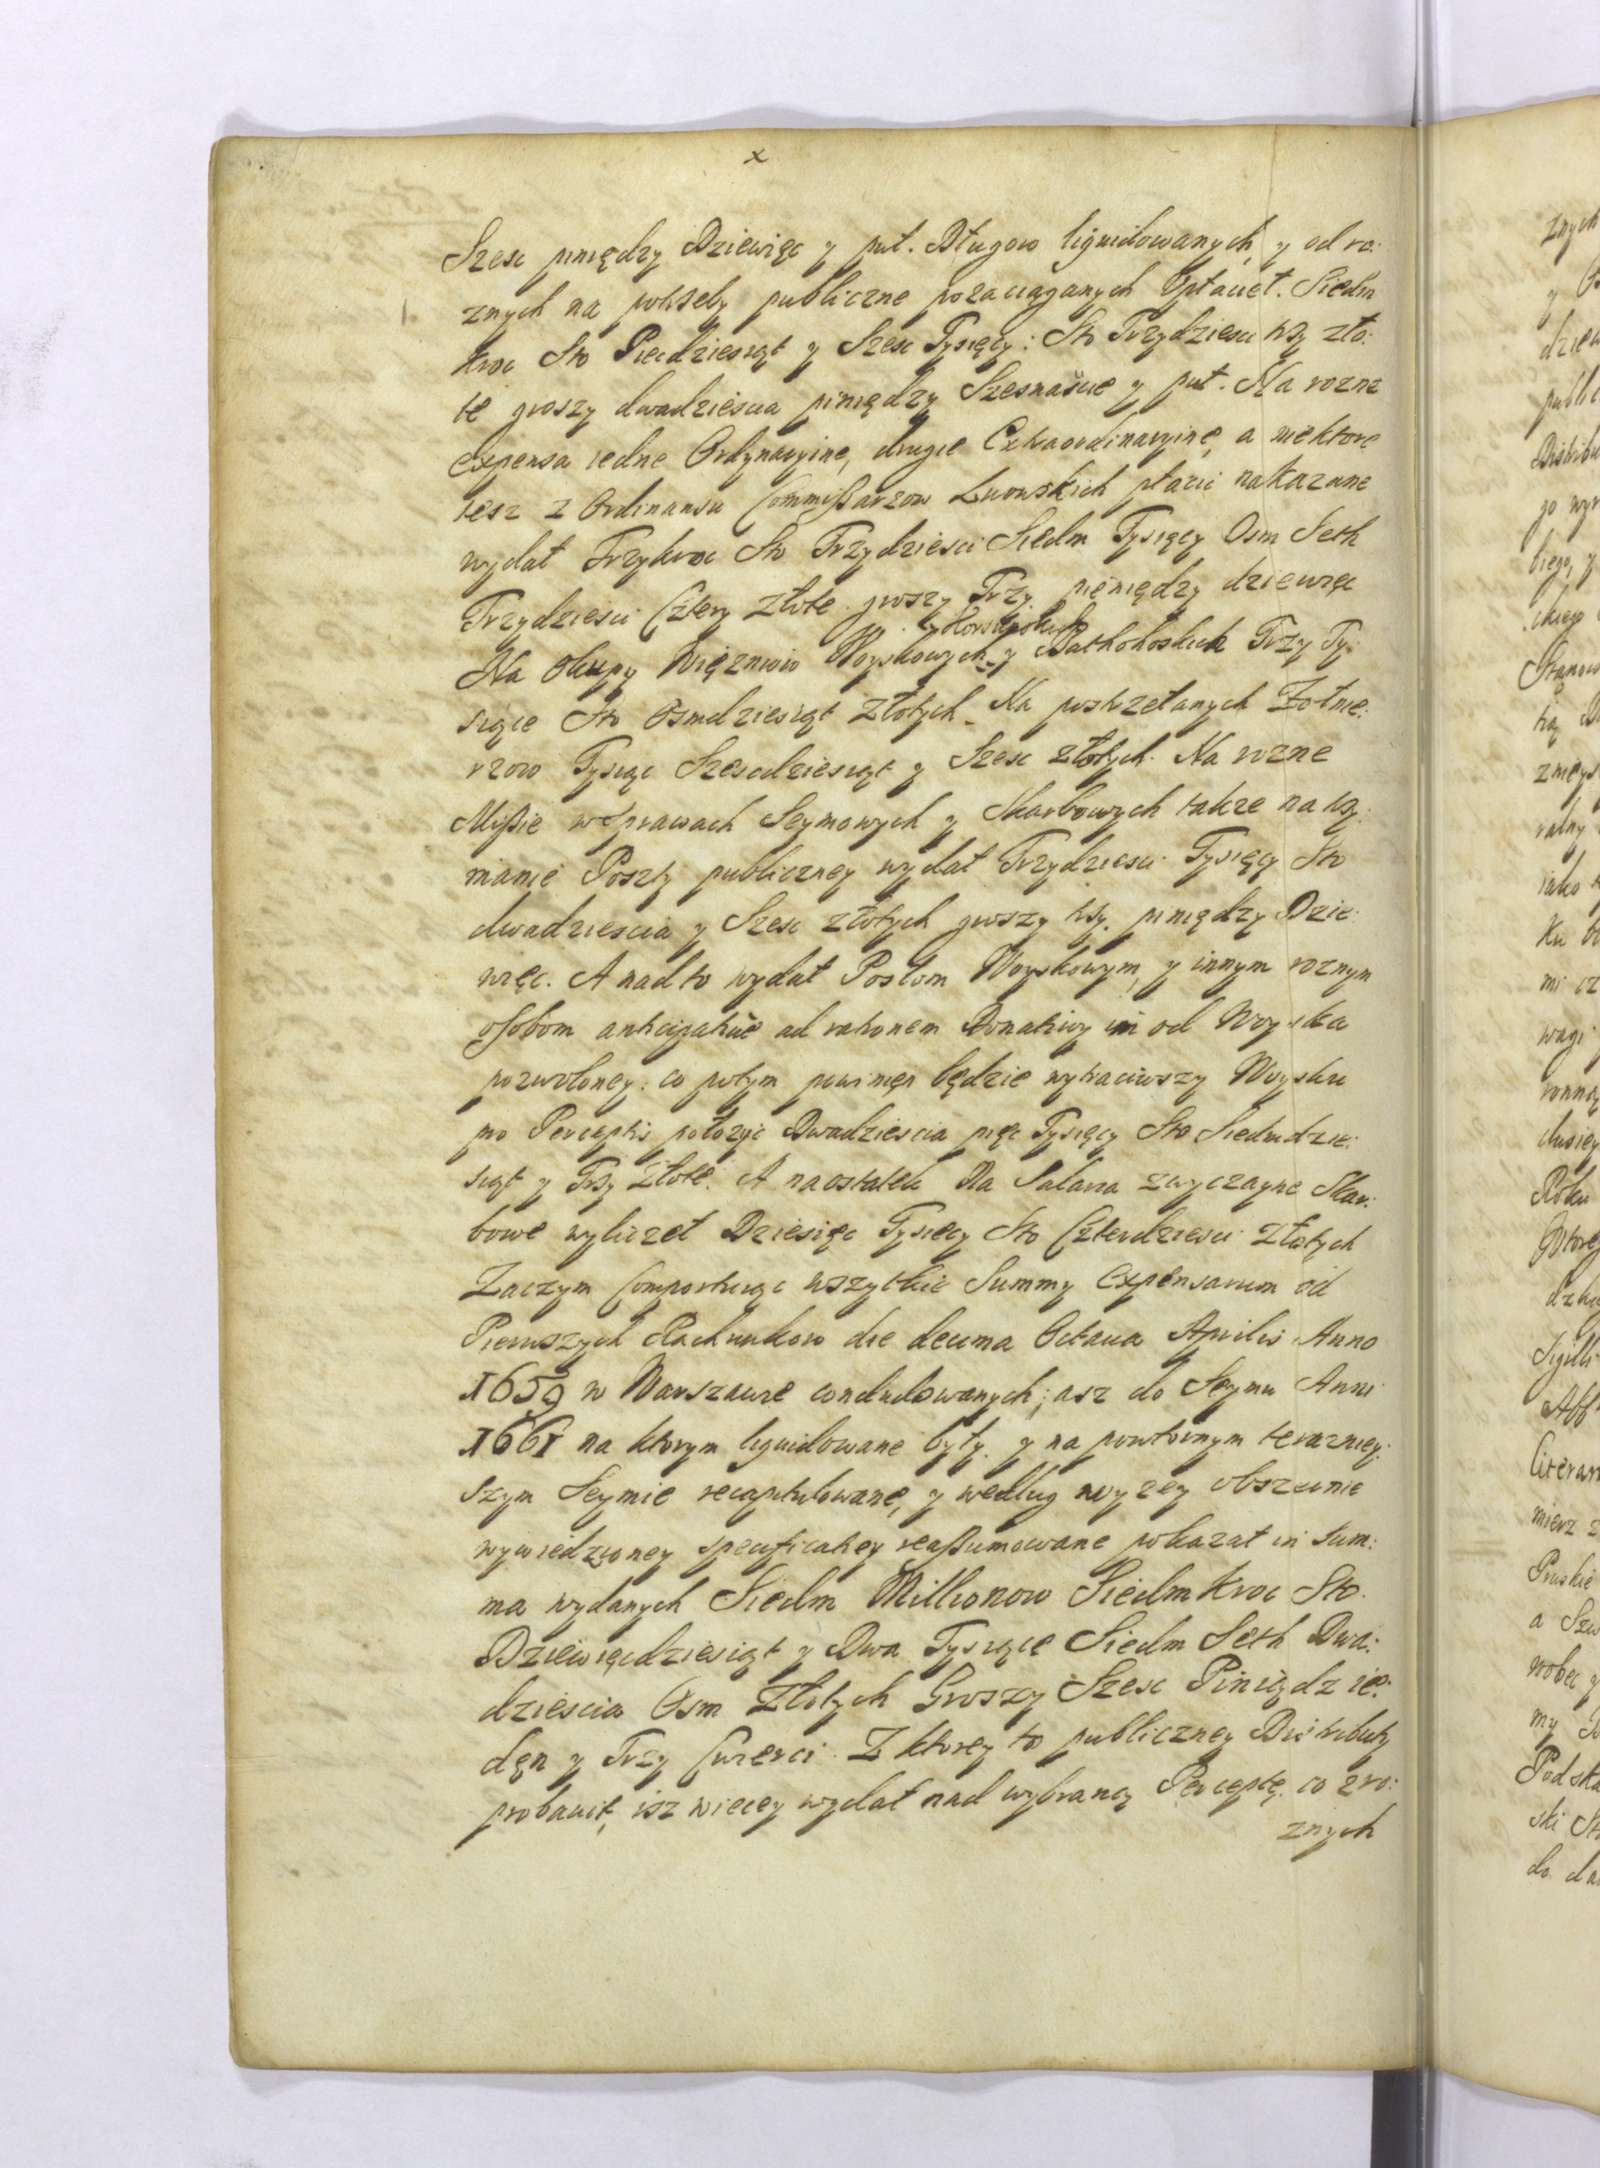 x
Szesc piniędzy Dziewięc y puł. Długow liquidowanych, y od ro:
znych na potrzeby publiczne pozaciąganych Opłacieł. Siedm
kroc Sto Piecdziesiąt y Szesc Tysięcy: Sto Trzydziesci trzy zło:
te groszy dwadziescia piniędzy Szesnascie y puł. Na rozne
expensa iedne Ordynaryine, drugie Extraordinaryine, a niektore
tesz z Ordinansu Commißarzow Lwowskich płacic nakazane
wydał Trzykroc Sto Trzydziesci Siedm Tysięcy Osm Seth
Trzydziesci Cztery Złote groszy Trzy pieniędzy dziewięc
Na Okupy Więzniow Woyskowych y Trzy Ty:
siące Sto Osmdziesiąt Złotych. Na postrzelanych Zołnie:
rzow Tysiąc Szescdziesiąt y Szesc złotych. Na rozne
Mißie w Sprawach Seymowych y Skarbowych takze na trzy:
manie Poszty publiczney wydał Trzydziesci Tysięcy Sto
dwadziescia y Szesc złotych groszy trzy. piniędzy Dzie:
więc. A nad to wydał Posłom Woyskowym, y innym roznym
osobom anticipatiue ad rationem Donatiwy im od Woyska
pozwoloney. co potym powinien będzie wytrąciwszy Woysku
pro Perceptis połozyc Dwadziescia pięc Tysięcy Sto Siedmdzie:
siąt y Trzy Złote. A naostatek Na Salaria zwyczayne Skar:
bowe wyliczeł Dziesięc Tysięcy Sto Czterdziesci Złotych
Zaczym Comportuiąc wszytkie Summy Expensarum od
Pierwszych Rachunkow die decima Octaua Aprilis Anno
1659 w Warszawie concludowanych; asz do Seymu Anni
1661 na ktorym liquidowane były. y na powtornym terazniey:
szym Seymie recapitulowane, y według wyzey obszernie
wywiedzioney specificatiey reaßumowane pokazał in Sum:
ma wydanych Siedm Millionow Siedmkroc Sto.
Dziewięcdziesiąt y Dwa Tysiące Siedm Seth Dwa:
dziescia Osm Złotych Groszy Szesc Piniędz ie:
dęn y Trzy Cwierci. Z ktorey to publiczney Distributy
probauit, isz wiecey wydał nad wybraną Perceptę. co z ro:
znych